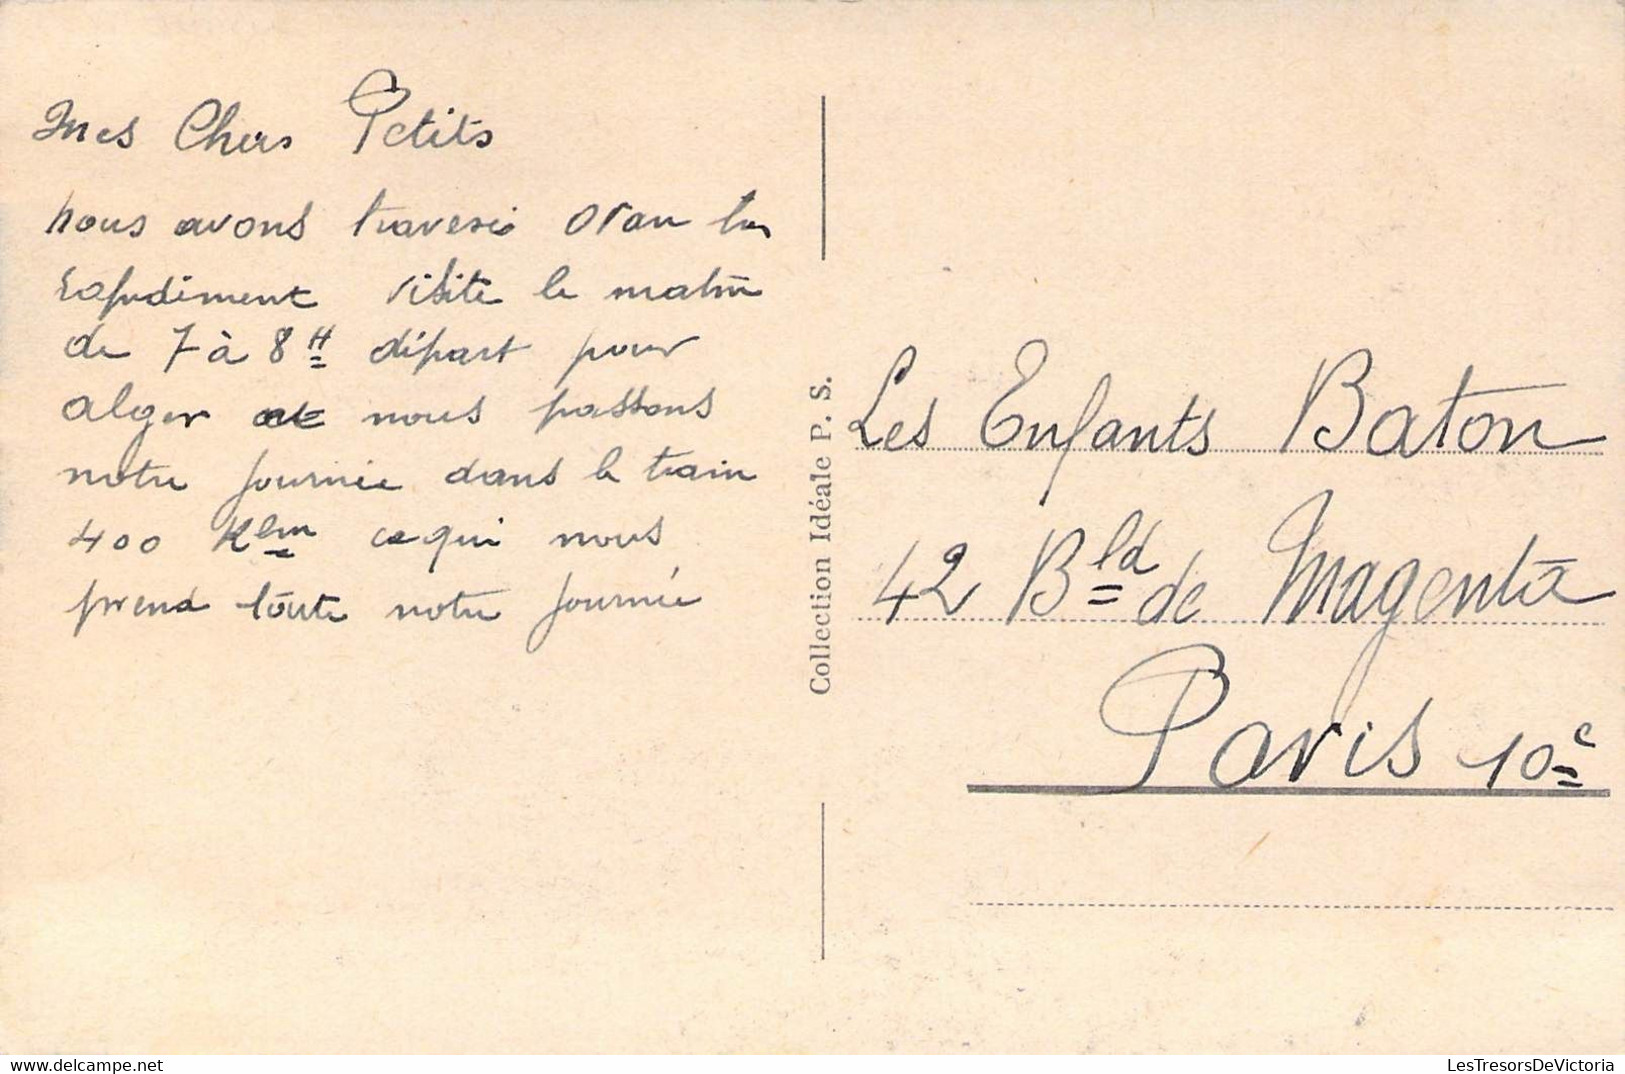 Mes Chers Petits
nous avons traversé Oran très
rapidement visité le matin
de 7 à 8 H départ pour
alger nous passons
notre journée dans le train
400 Klm ce qui nous
prend toute notre journée
Collection Idéale P. S.
Les Enfants Baton
42 Bld de Magenta
Paris 10e
LesTresorsDeVictoria